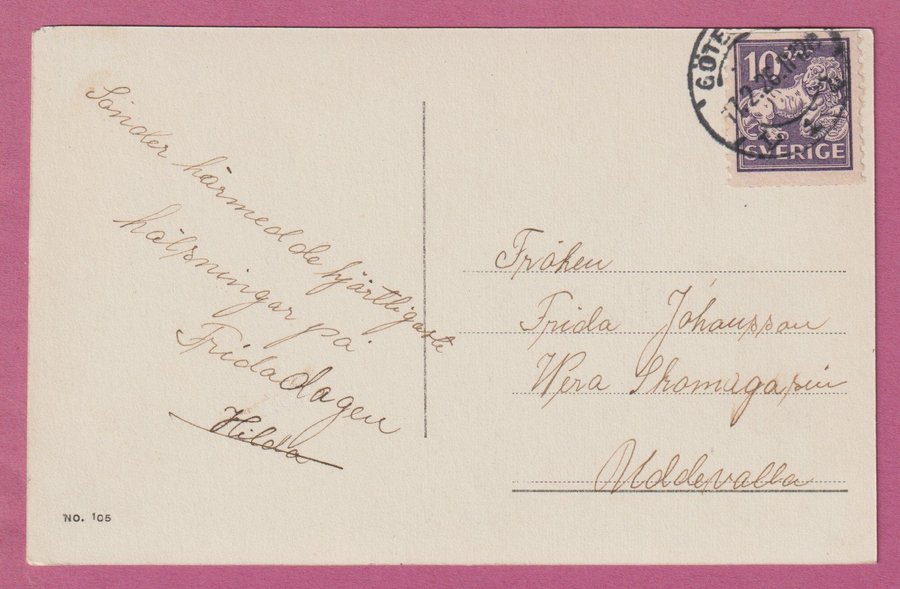 Sönder härmed de hjärtligaste
hälsningar på
Fridadagen
Hilda
GÖTE
17.2.26
10 ÖRE
SVERIGE
Fröken
Frida Johansson
Wera Skomagasin
Uddevalla
NO. 105